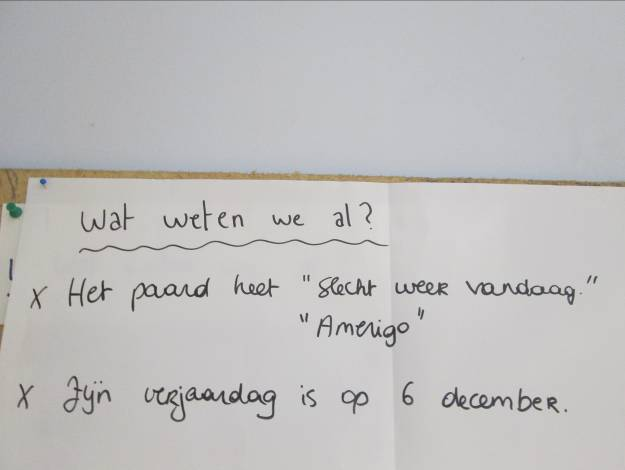 Wat weten we al?
x Het paard heet "Slecht weer vandaag."
"Amerigo"
x Zijn verjaardag is op 6 december.